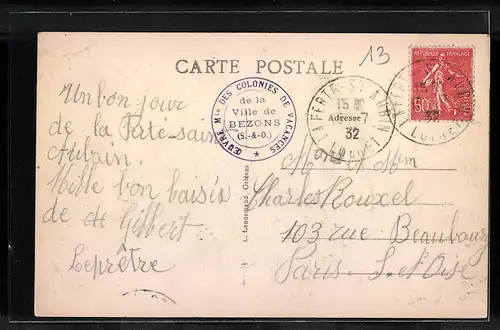 13
CARTE POSTALE
RÉPUBLIQUE FRANÇAISE
50
ŒUVRE Mle DES COLONIES DE VACANCES
de la
Ville de
BEZONS
(S.-&-O.)
LA FERTE ST AUBIN
15
7
32
LOIRET
LA FERTE ST AUBIN
32
LOIRET
Adresse
Un bon jour
de la Ferté-saint
Aubin
Mille bon baisés
de Gilbert
Leprêtre
L. Lenormand, Orléans
M et Mem
Charles Rouxel
103 rue Beaubourg
Paris S. et Oise